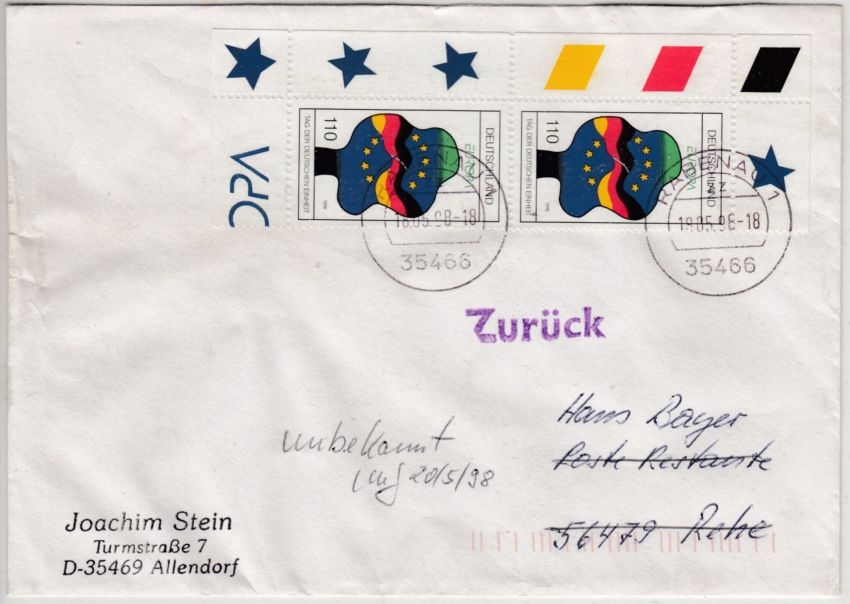 OPA
110
DEUTSCHLAND
EUROPA
TAG DER DEUTSCHEN EINHEIT
110
DEUTSCHLAND
EUROPA
TAG DER DEUTSCHEN EINHEIT
18.05.98-18
35466
RABENAU 1
18.05.98-18
35466
Zurück
Hans Bayer
Poste Restante
56479 Rehe
unbekannt
20/5/98
Joachim Stein
Turmstraße 7
D-35469 Allendorf